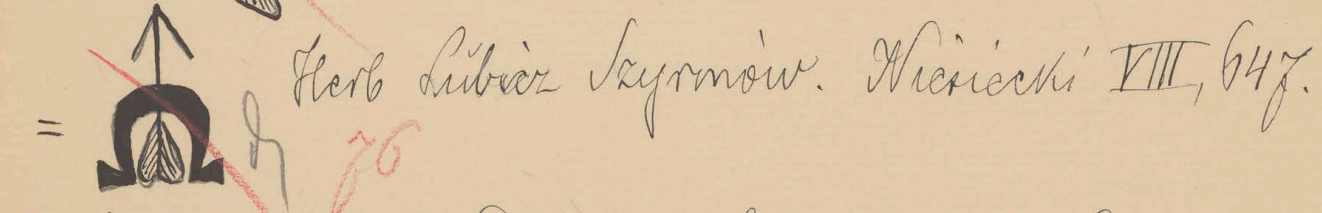 = Herb Lubicz Szyrmów. Niesiecki VIII, 647.
76